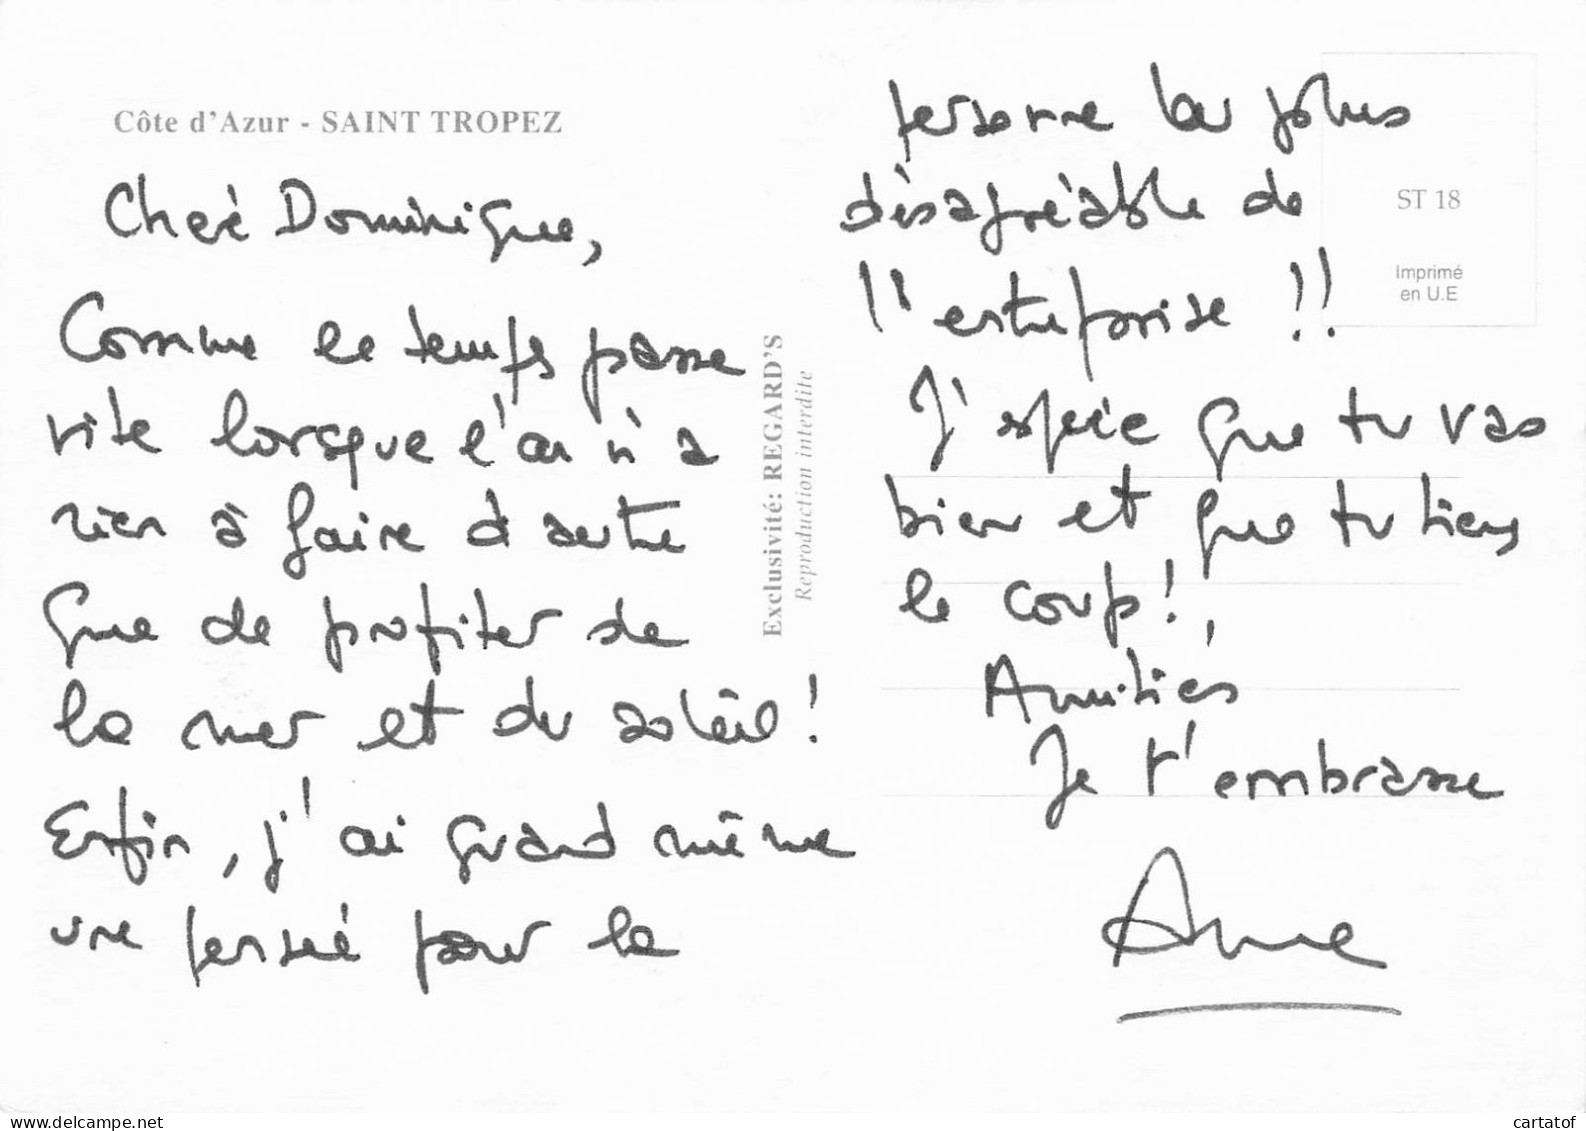 Côte d'Azur - SAINT TROPEZ
Cheré Dominique,
Comme le temps passe
vite lorsque l'on n'a
rien à faire d'autre
que de profiter de
la mer et du soleil !
Enfin, j'ai quand même
une pensée pour la
Exclusivité: REGARD'S
Reproduction interdite
personne la plus
désagréable de
l'entreprise !!
J'espère que tu vas
bien et que tu tiens
le coup !
Amitiés
Je t'embrasse
Anne
ST 18
Imprimé
en U.E
delcampe.net
cartatof